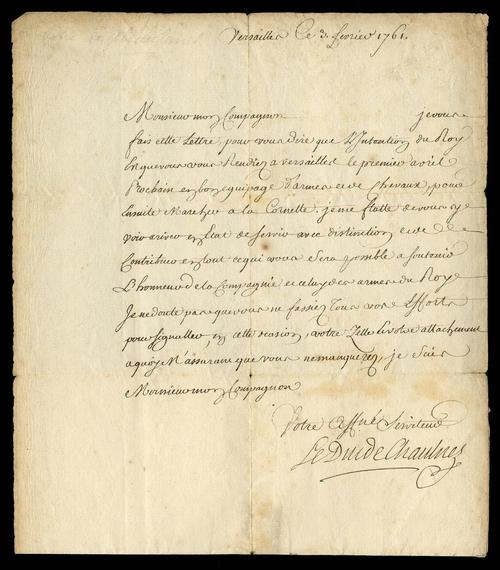 Versailles Ce 3. fevrier 1761.
Monsieur mon Compagnon je vous
fais cette Lettre, pour vous dire que L'Intention du Roy
Est que vous vous Rendiez a versailles le premier avril
Prochain en bon equipage d'armes et de Chevaux, pour
Ensuite Marcher a la Cornette. je me flatte de vous y
voir arriver en Etat de servir avec distinction et de
Contribuer en tout ce qui vous sera possible a soutenir
L'honneur de la Compagnie et celuy des armes du Roy
Je ne doute pas que vous ne fassiez Tous vos Efforts
pour signaller, en cette ocasion, votre Zelle et votre attachement
a quoy M'assurant que vous ne manquerez, je suis
Monsieur mon Compagnon
Votre affné Serviteur
Le Duc de Chaulnes